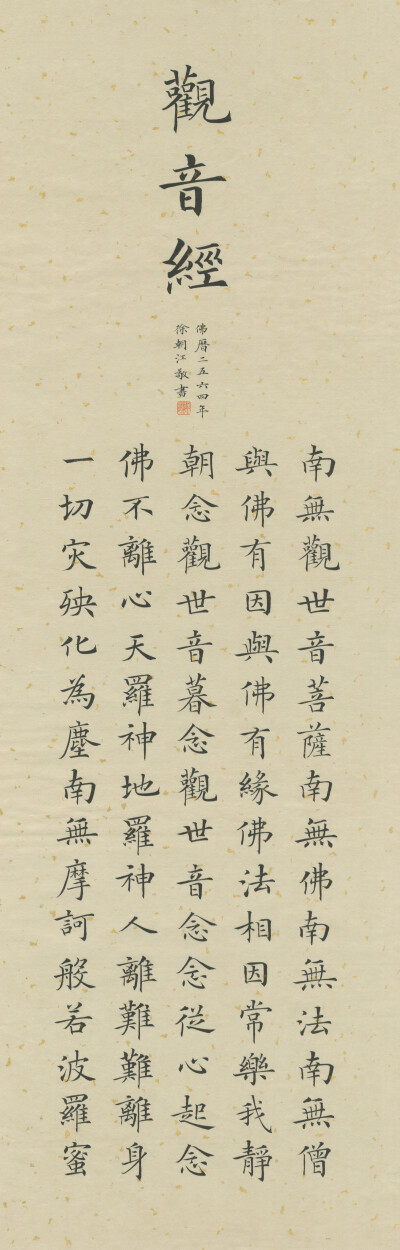 觀音經
佛曆二五六四年
徐朝江敬書
南無觀世音菩薩南無佛南無法南無僧
與佛有因與佛有緣佛法相因常樂我靜
朝念觀世音暮念觀世音念念從心起念
佛不離心天羅神地羅神人離難難離身
一切灾殃化為塵南無摩訶般若波羅蜜